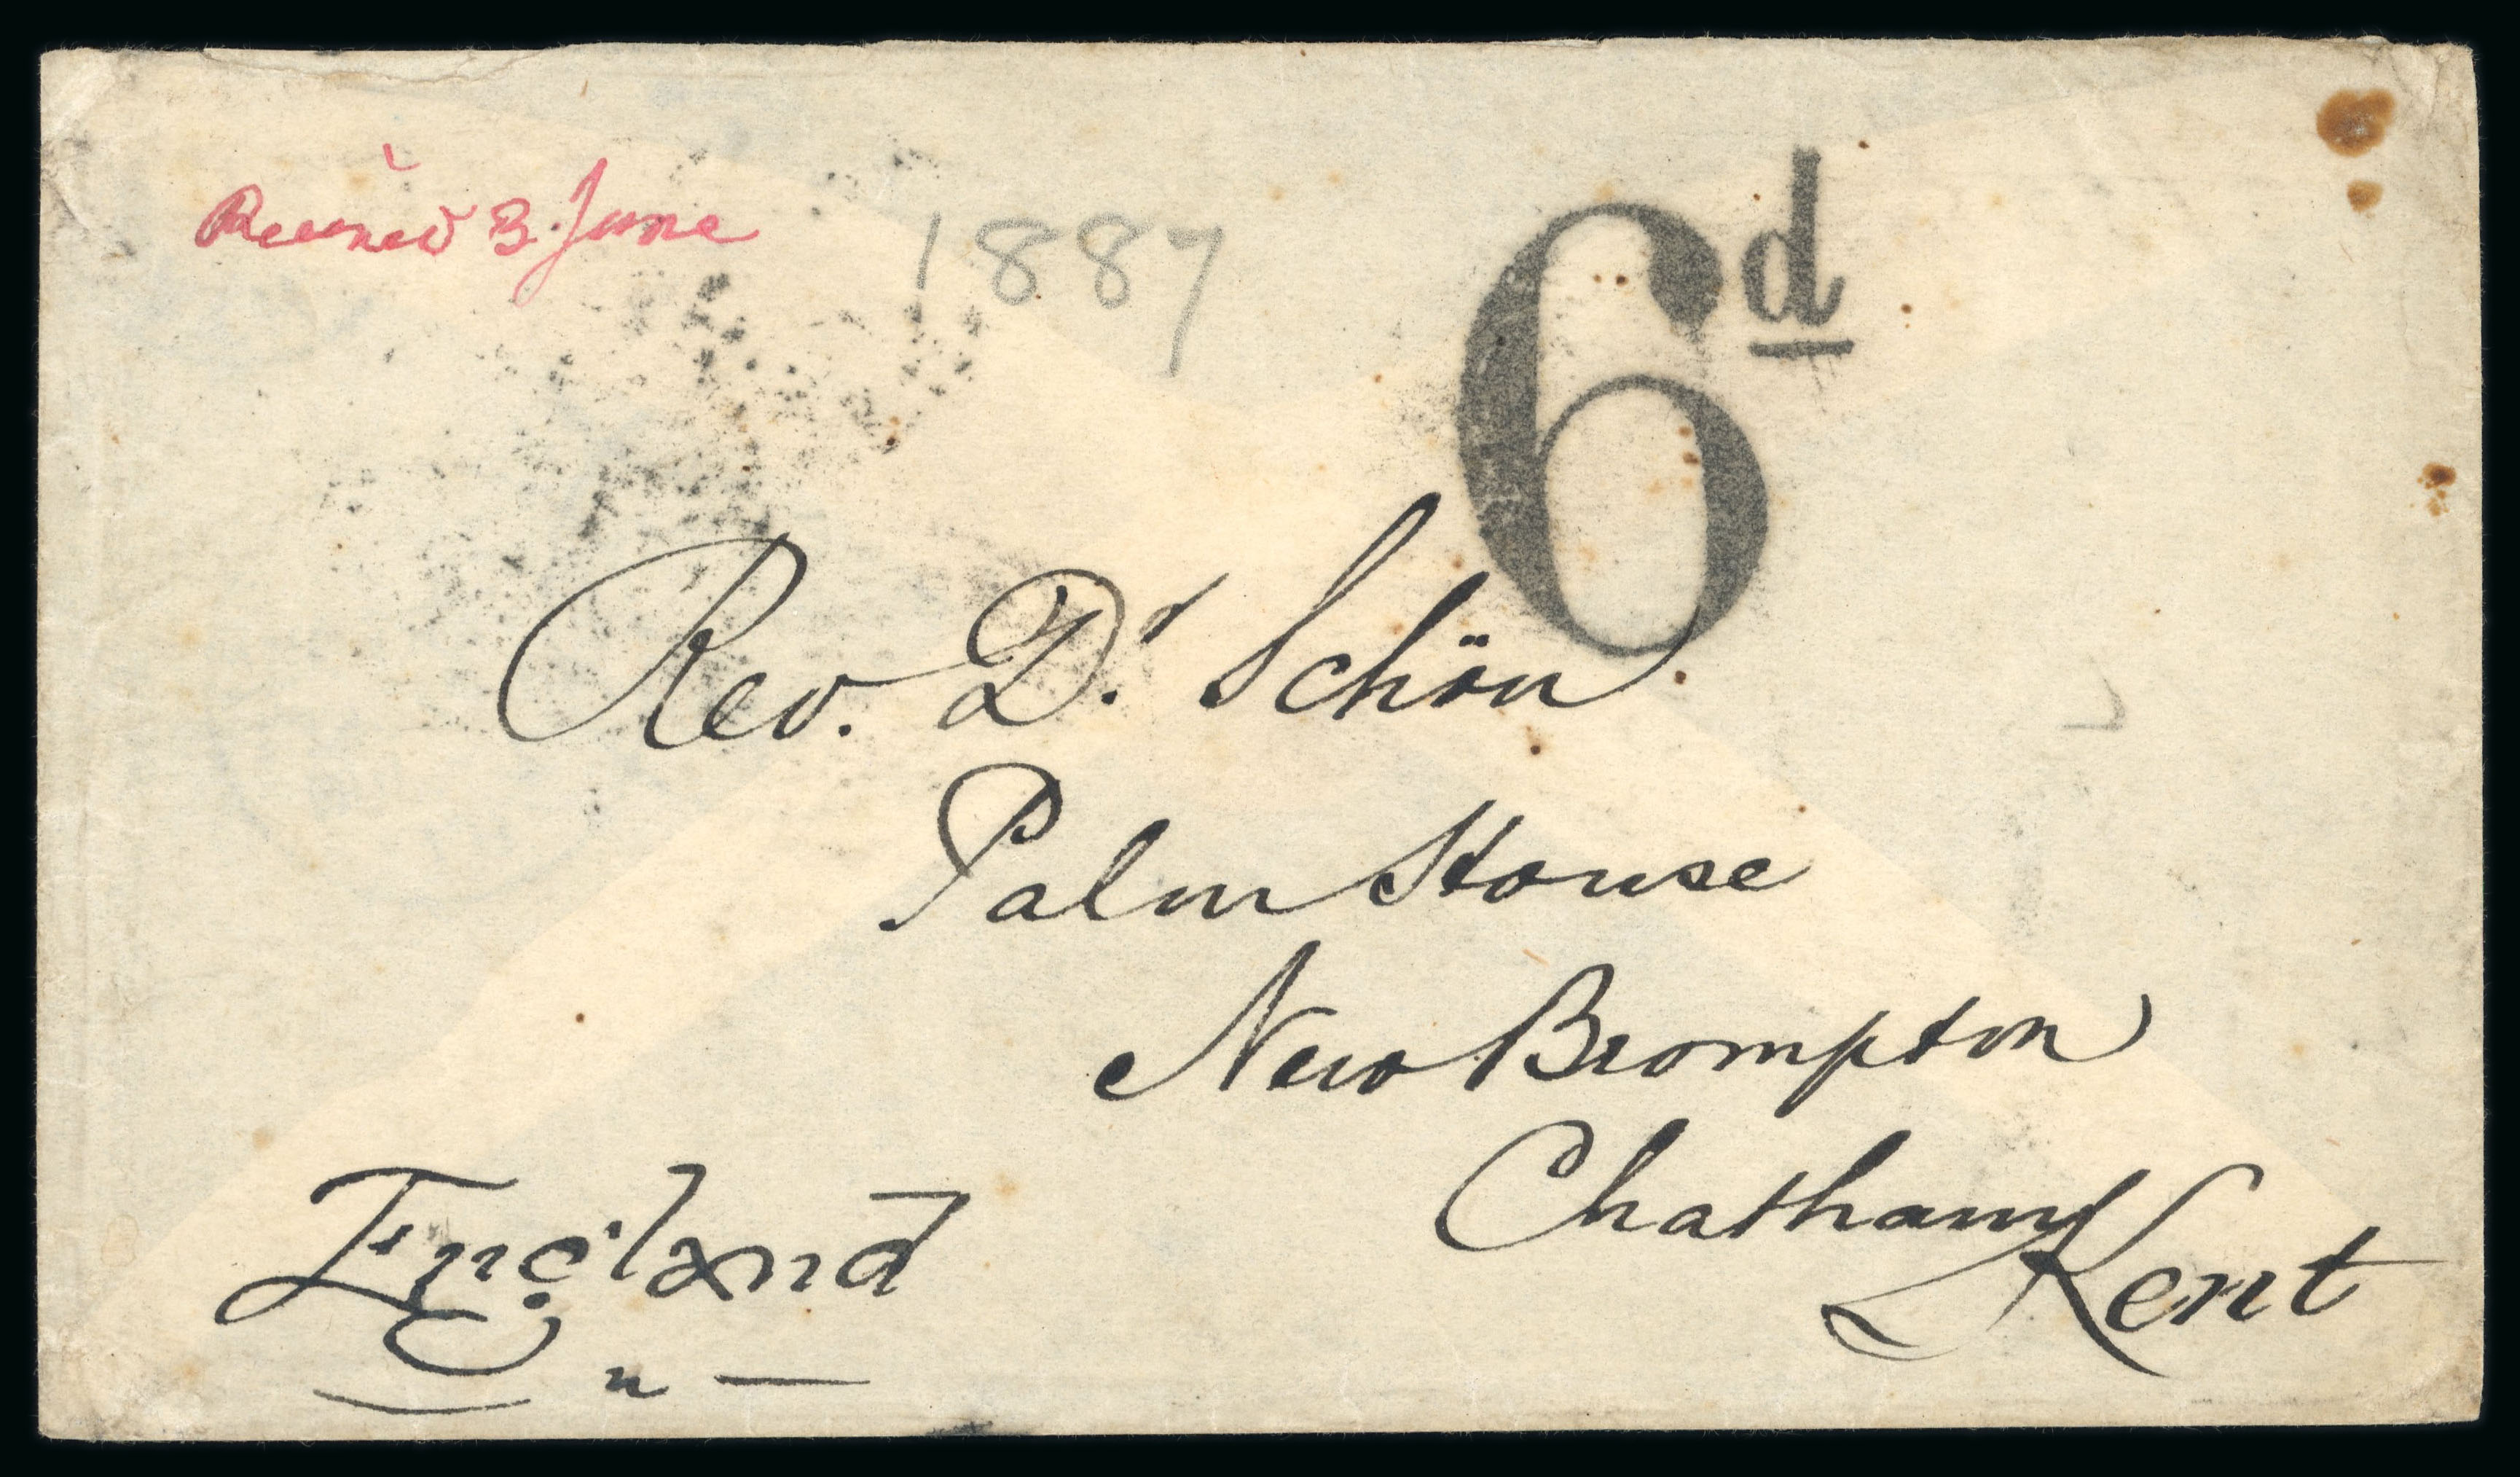 Received 3 June
1887
6d
Rev. Dr. Schön
Palm House
New Brompton
Chatham
Kent
England